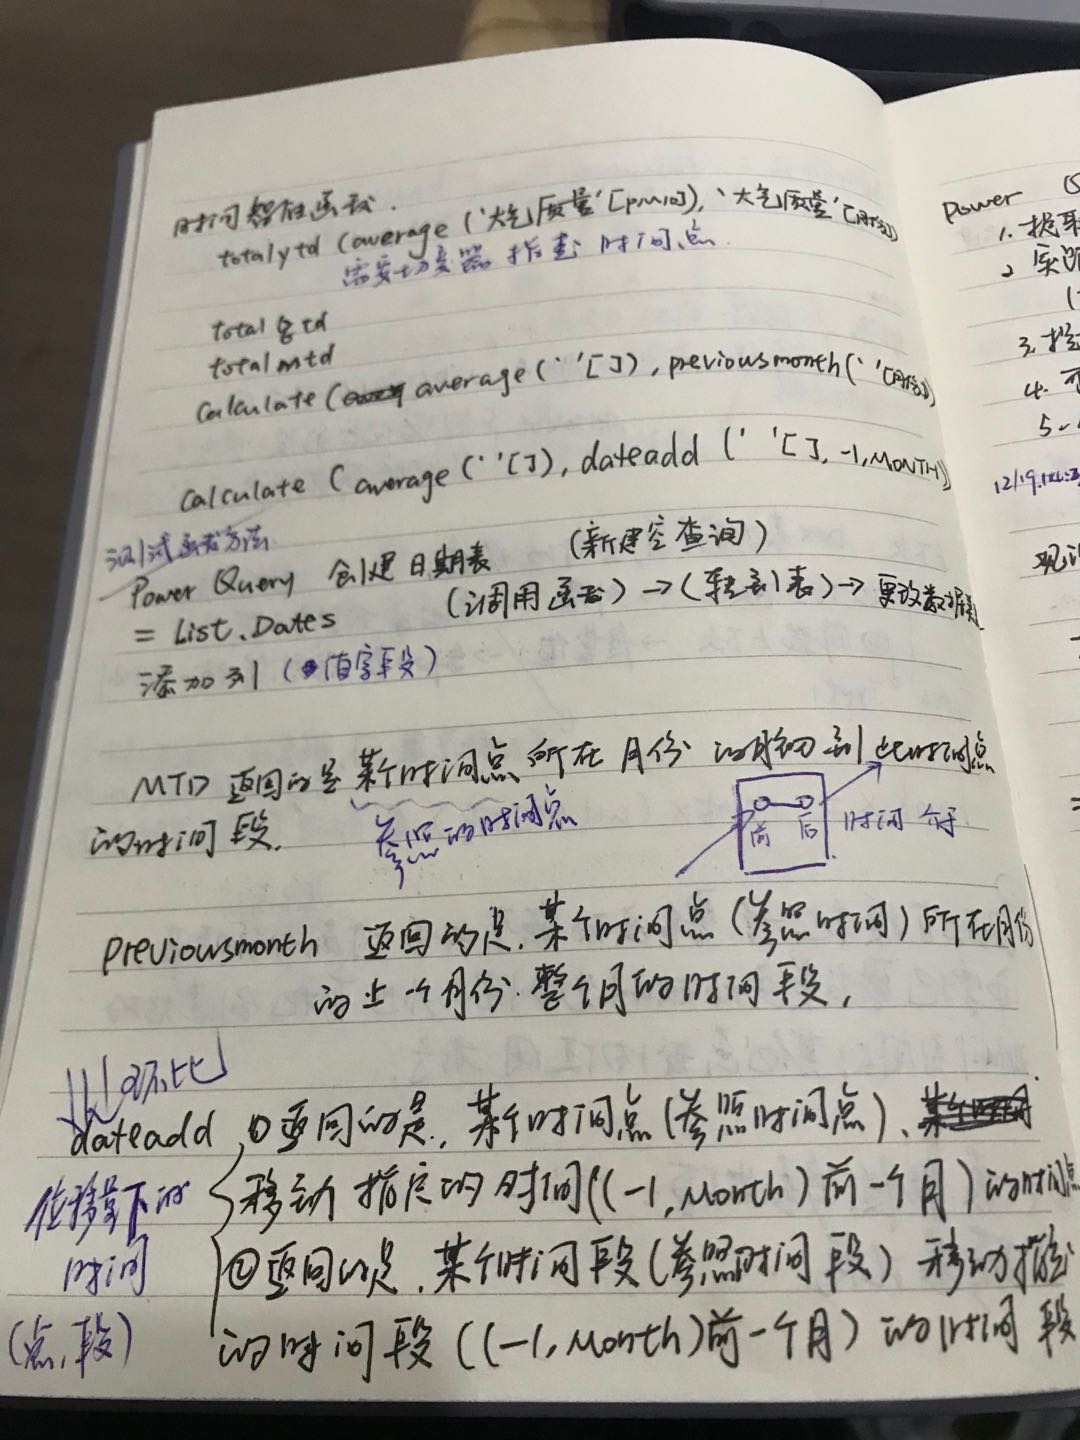 时间智能函数.
totalytd (average ('大气质量'[pm10]), '大气质量'[月份])
需要切变器 指定 时间点.
total qtd
total mtd
Calculate ( average (' '[ ]), previousmonth (' '[月份])
Calculate (average (' '[ ]), dateadd (' '[ ], -1, MONTH))
测试函数方法
Power Query 创建日期表 (新建空查询)
= List.Dates (调用函数) → (转到表) → 更改数据类
添加列 (值字段)
MTD 返回的是 某个时间点 所在 月份 的月初 到 此时间点
的时间段. 参照的时间点
前 后 时间介于
previousmonth 返回的是, 某个时间点 (参照时间) 所在月份
的上一个月份. 整个月的时间段,
环比
dateadd ①返回的是, 某个时间点 (参照时间点)、
位移量下的 移动 指定的时间 ((-1, Month) 前一个月) 的时间点
时间 ②返回的是, 某个时间段 (参照时间段) 移动指定
(点, 段) 的时间段 ((-1, Month) 前一个月) 的时间段
Power
1. 提取
2
3.
4.
5.
12/19.